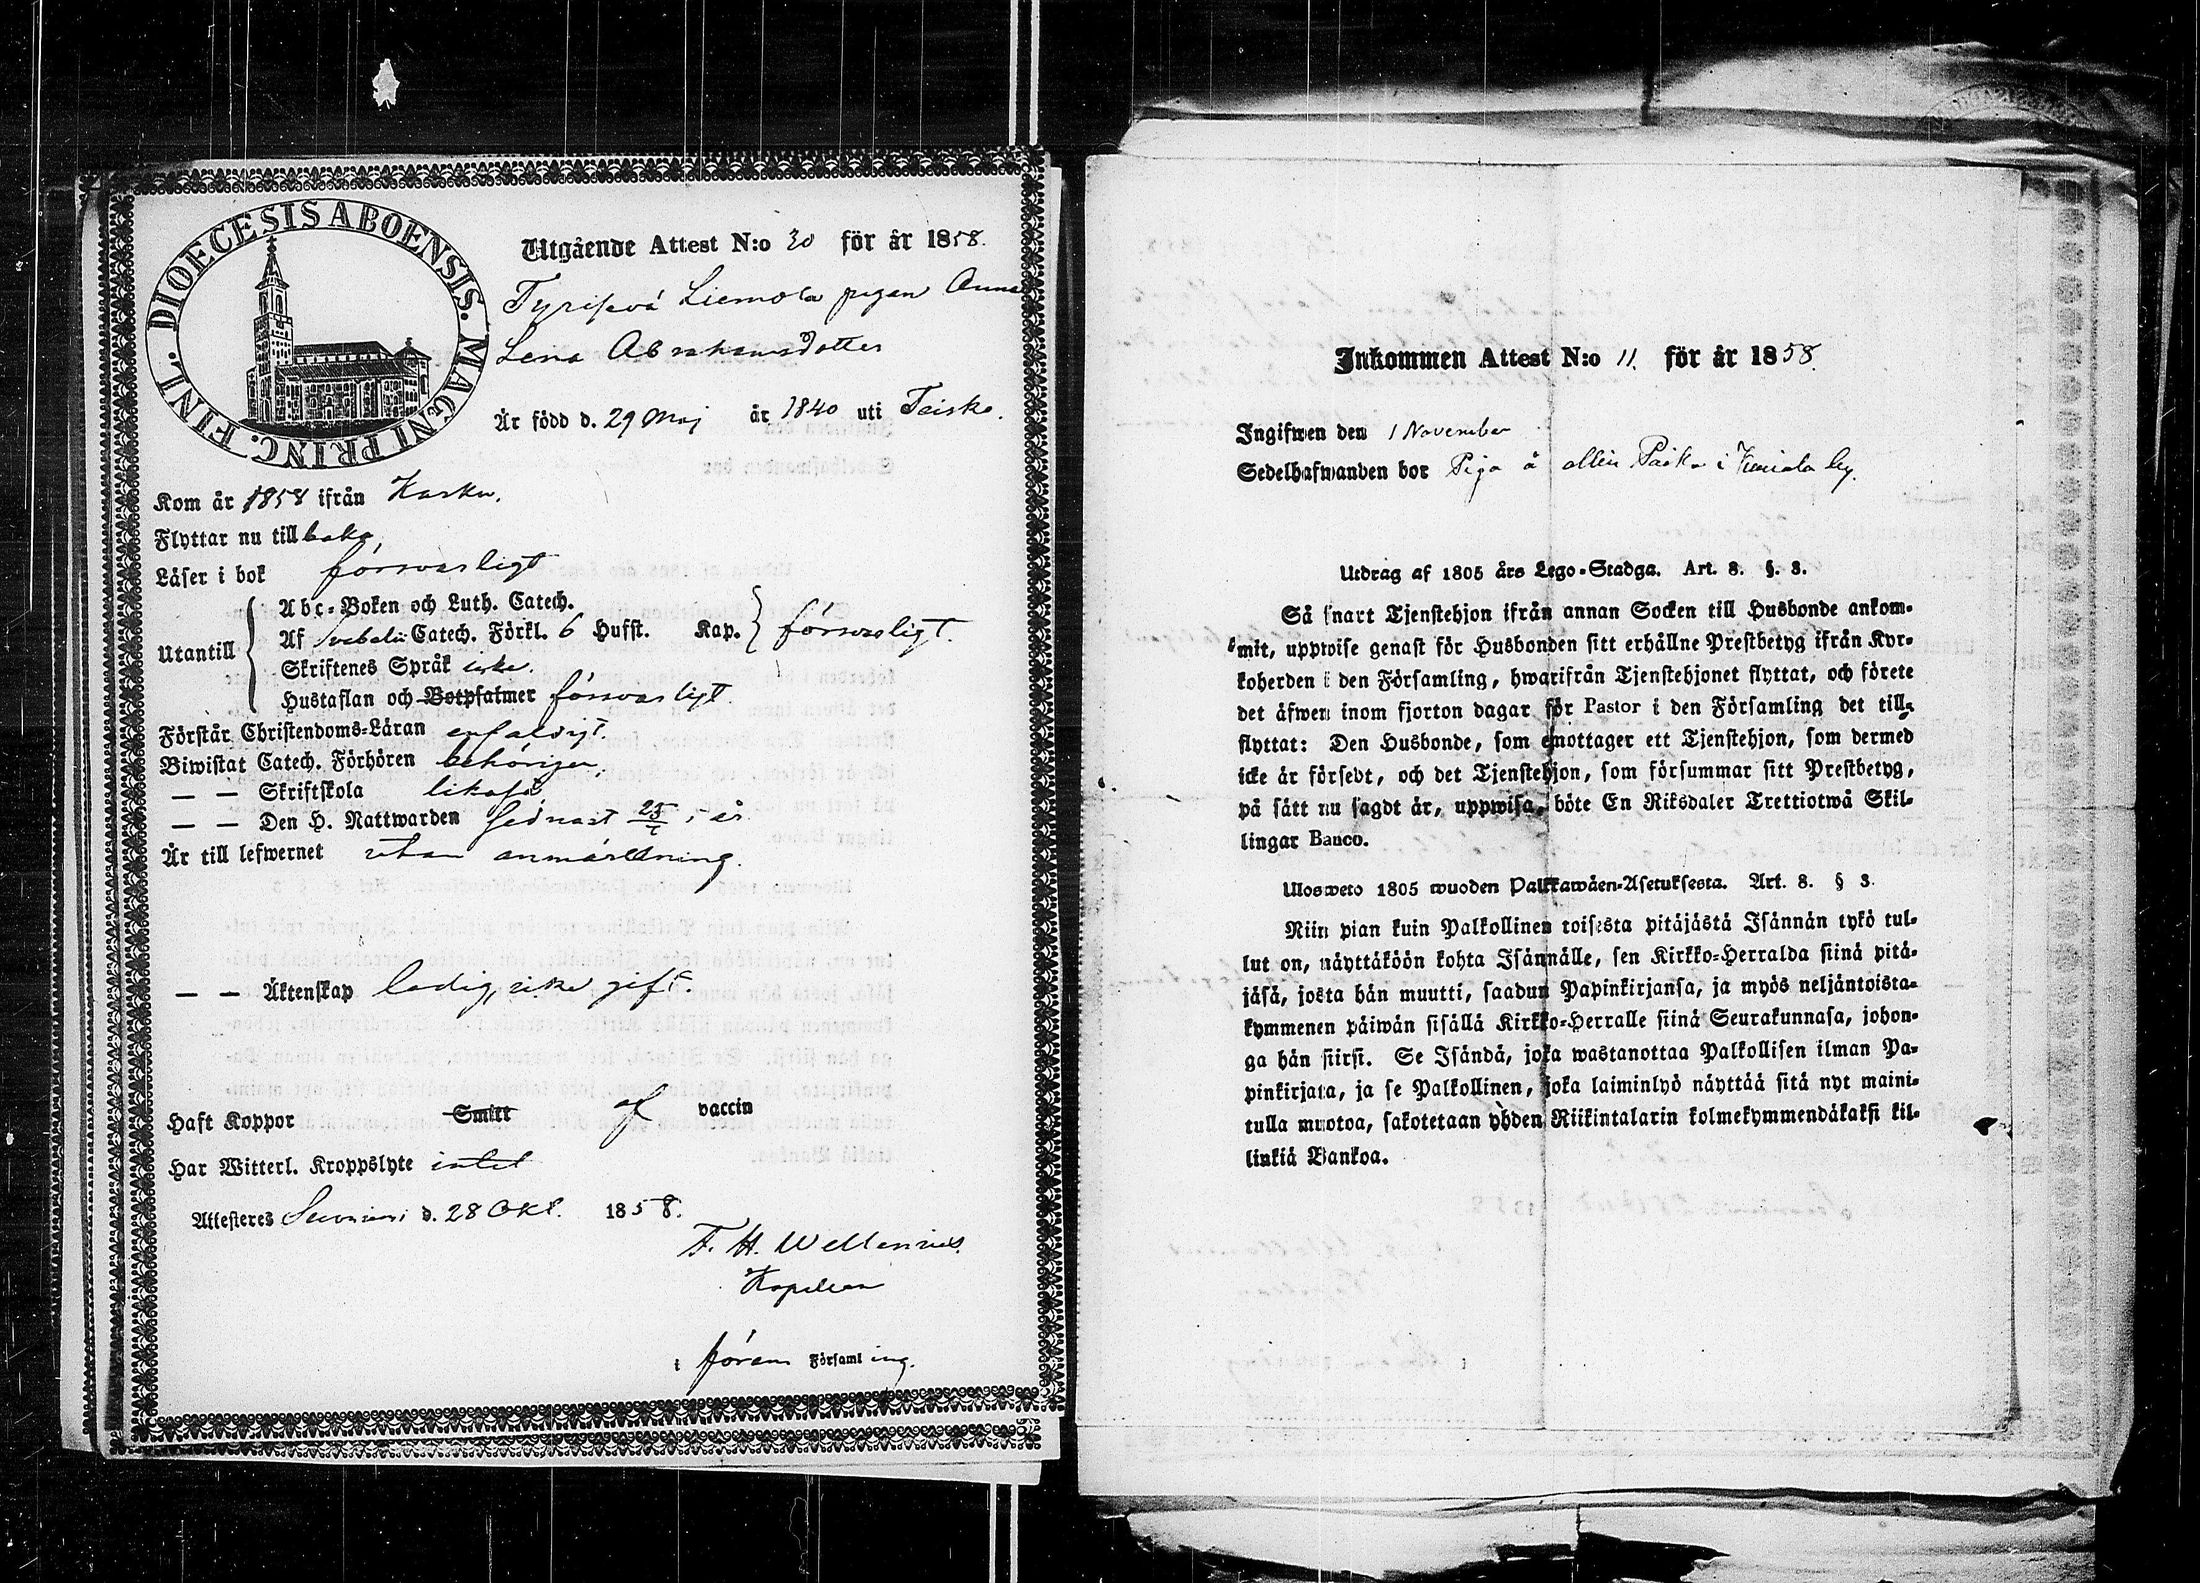 DIOECESIS ABOENSIS. MAGNI PRINC. FINL.
Utgående Attest N:o 30 för år 1858.
pigan Anna
Lena Abrahamsdotter
Är född d. 29 Maj år 1840 uti Teisko.
Kom år 1858 ifrån Kuru.
Flyttar nu tillbaka,
Läser i bok försvarligt
Utantill
Abc-Boken och Luth. Catech.
Af Svebelii Catech. Förkl. 6 Hufst. Kap. försvarligt.
Skriftenes Språk icke.
Hustaflan och Botpsalmer försvarligt
Förstår Christendoms-Läran enfaldigt.
Biwistat Catech. Förhören behörigen,
— — Skriftskola likaså
— — Den H. Nattwarden sednast 25/7 i år
Är till lefwernet utan anmärkning.
— — Äktenskap ledig, icke gift.
Haft Koppor Smitt af vaccin
Har Witterl. Kroppslyte intet
Attesteres d. 28 Okt. 1858.
F. H. Wellenius.
Kapellan
i föran Församling.
Inkommen Attest N:o 11. för år 1858.
Ingifwen den 1 November
Sedelhafwanden bor Piga å i by.
Utdrag af 1805 års Lego-Stadga. Art. 8. §. 3.
Så snart Tjenstehjon ifrån annan Socken till Husbonde ankom-
mit, uppwise genast för Husbonden sitt erhållne Prestbetyg ifrån Kyr-
koherden i den Församling, hwarifrån Tjenstehjonet flyttat, och förete
det äfwen inom fjorton dagar för Pastor i den Församling det till-
flyttat: Den Husbonde, som emottager ett Tjenstehjon, som dermed
icke är försedt, och det Tjenstehjon, som försummar sitt Prestbetyg,
på sätt nu sagdt är, uppwisa, böte En Riksdaler Trettiotwå Skil-
lingar Banco.
Ulosweto 1805 wuoden Palkkawäen-Asetuksesta. Art. 8. § 3.
Niin pian kuin Palkollinen toisesta pitäjästä Isännän tykö tul-
lut on, näyttäköön kohta Isännälle, sen Kirkko-Herralda siinä pitä-
jäsä, josta hän muutti, saadun Papinkirjansa, ja myös neljäntoista-
kymmenen päiwän sisällä Kirkko-Herralle siinä Seurakunnasa, johon-
ga hän siirsi. Se Isändä, joka wastanottaa Palkollisen ilman Pa-
pinkirjata, ja se Palkollinen, joka laiminlyö näyttää sitä nyt maini-
tulla muotoa, sakotetaan yhden Riikintalarin kolmekymmendäkaksi kil-
linkiä Bankoa.